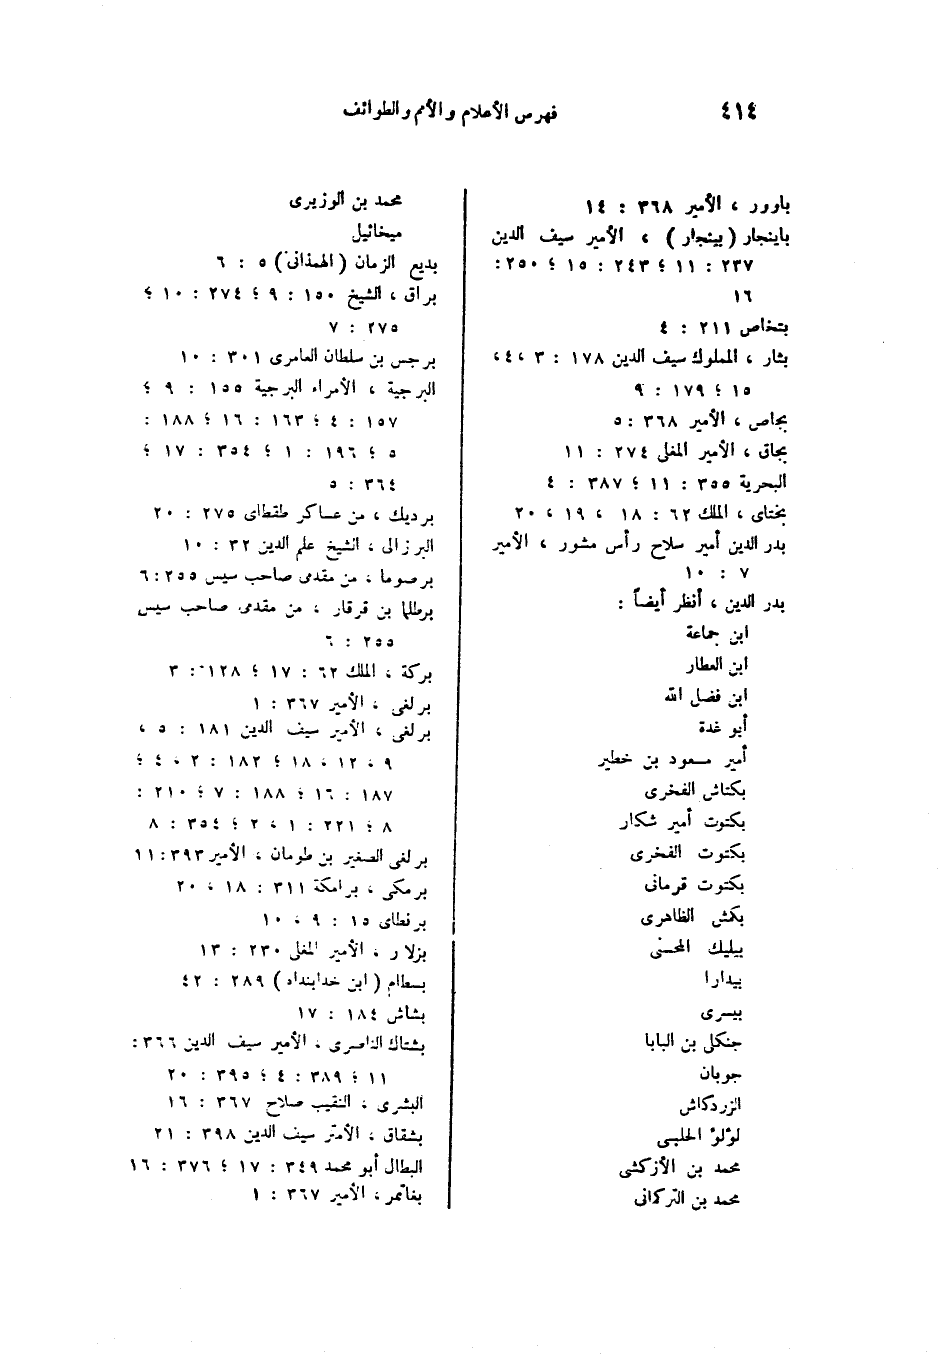 ٤١٤
فهرس الأعلام والأمم والطوائف
باوور ، الأمير ٣٦٨ : ١٤
باينجار (بينجار) ، الأمير سيف الدين
٢٣٧ : ١١ ؛ ٢٤٣ : ١٥ ؛ ٢٥٠ :
١٦
بتخاص ٢١١ : ٤
بثار ، المملوك سيف الدين ١٧٨ : ٣ ،٤،
١٥ ؛ ١٧٩ : ٩
بجاص ، الأمير ٣٦٨ : ٥
بجاق ، الأمير المغلى ٢٧٤ : ١١
البحرية ٣٥٥ : ١١ ؛ ٣٨٧ : ٤
بختاى ، الملك ٦٢ : ١٨ ، ١٩ ، ٢٠
بدر الدين أمير سلاح رأس مشور ، الأمير
٧ : ١٠
بدر الدين ، أنظر أيضاً :
ابن جماعة
ابن العطار
ابن فضل الله
أبو غدة
أمير مسعود بن خطير
بكتاش الفخرى
بكتوت أمير شكار
بكتوت الفخرى
بكتوت قرمانى
بكمش الظاهرى
بيليك المحسنى
بيدارا
بيسرى
جنكلى بن البابا
جوبان
الزردكاش
لؤلؤ الحلبى
محمد بن الأزكشى
محمد بن التركمانى
محمد بن الوزيرى
ميخائيل
بديع الزمان (الهمذانى) ٥ : ٦
براق ، الشيخ ١٥٠ : ٩ ؛ ٢٧٤ : ١٠ ؛
٢٧٥ : ٧
برجس بن سلطان العامرى ٣٠١ : ١٠
البرجية ، الأمراء البرجية ١٥٥ : ٩ ؛
١٥٧ : ٤ ؛ ١٦٣ : ١٦ ؛ ١٨٨ :
٥ ؛ ١٩٦ : ١ ؛ ٣٥٤ : ١٧ ؛
٣٦٤ : ٥
برديك ، من عساكر طقطاى ٢٧٥ : ٢٠
البرزالى ، الشيخ علم الدين ٣٢ : ١٠
برصوما ، من مقدمى صاحب سيس ٢٥٥ : ٦
برطلما بن قرقار ، من مقدمى صاحب سيس
٢٥٥ : ٦
بركة ، الملك ٦٢ : ١٧ ؛ ١٢٨ : ٣
برلغى ، الأمير ٣٦٧ : ١
برلغى ، الأمير سيف الدين ١٨١ : ٥ ،
٩ ، ١٢ ، ١٨ ؛ ١٨٢ : ٢ ، ٤ ؛
١٨٧ : ١٦ ؛ ١٨٨ : ٧ ؛ ٢١٠ :
٨ ؛ ٢٢١ : ١ ، ٢ ؛ ٣٥٤ : ٨
برلغى الصغير بن طومان ، الأمير ٣٩٣ : ١١
برمكى ، برامكة ٣١١ : ١٨ ، ٢٠
برنطاى ١٥ : ٩ ، ١٠
بزلار ، الأمير المغلى ٢٣٠ : ١٣
بسطام (ابن خدابنداه) ٢٨٩ : ٤٢
بشاش ١٨٤ : ١٧
بشتاك الناصرى ، الأمير سيف الدين ٣٦٦ :
١١ ؛ ٣٨٩ : ٤ ؛ ٣٩٥ : ٢٠
البشرى ، النقيب صلاح ٣٦٧ : ١٦
بشقاق ، الأمير سيف الدين ٣٩٨ : ٢١
البطال أبو محمد ٣٤٩ : ١٧ ؛ ٣٧٦ : ١٦
بغاتمر ، الأمير ٣٦٧ : ١